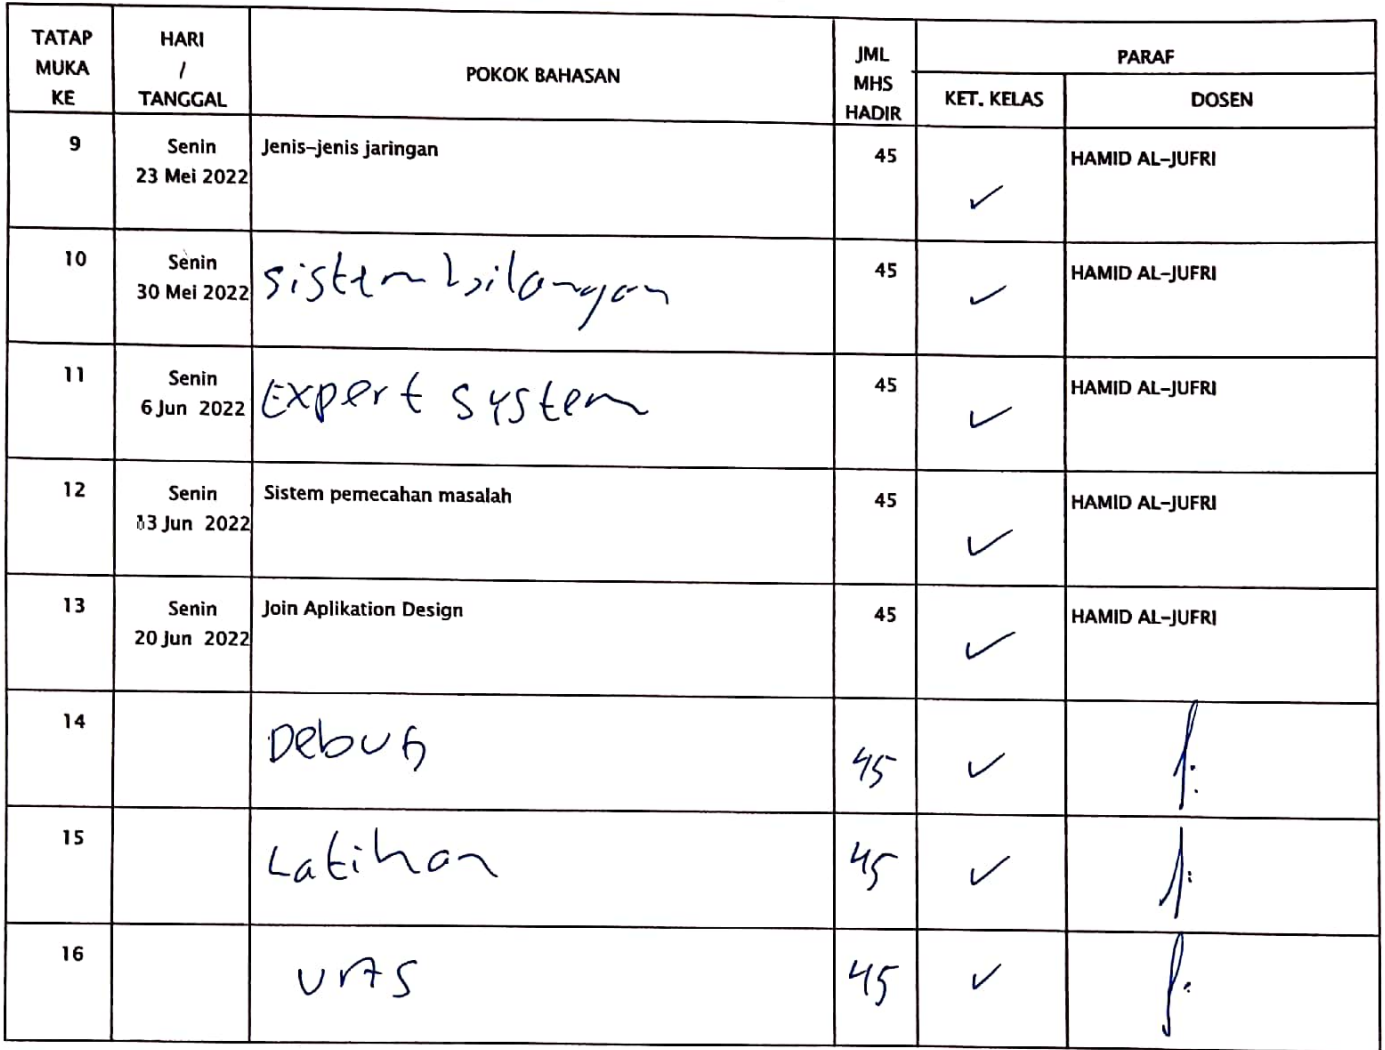 TATAP MUKA KE
HARI / TANGGAL
POKOK BAHASAN
JML MHS HADIR
PARAF
KET. KELAS
DOSEN
9
Senin 23 Mei 2022
Jenis-jenis jaringan
45
HAMID AL-JUFRI
10
Senin 30 Mei 2022
Sistem bilangan
45
HAMID AL-JUFRI
11
Senin 6 Jun 2022
Expert System
45
HAMID AL-JUFRI
12
Senin 13 Jun 2022
Sistem pemecahan masalah
45
HAMID AL-JUFRI
13
Senin 20 Jun 2022
Join Aplikation Design
45
HAMID AL-JUFRI
14
Debug
45
15
Latihan
45
16
45